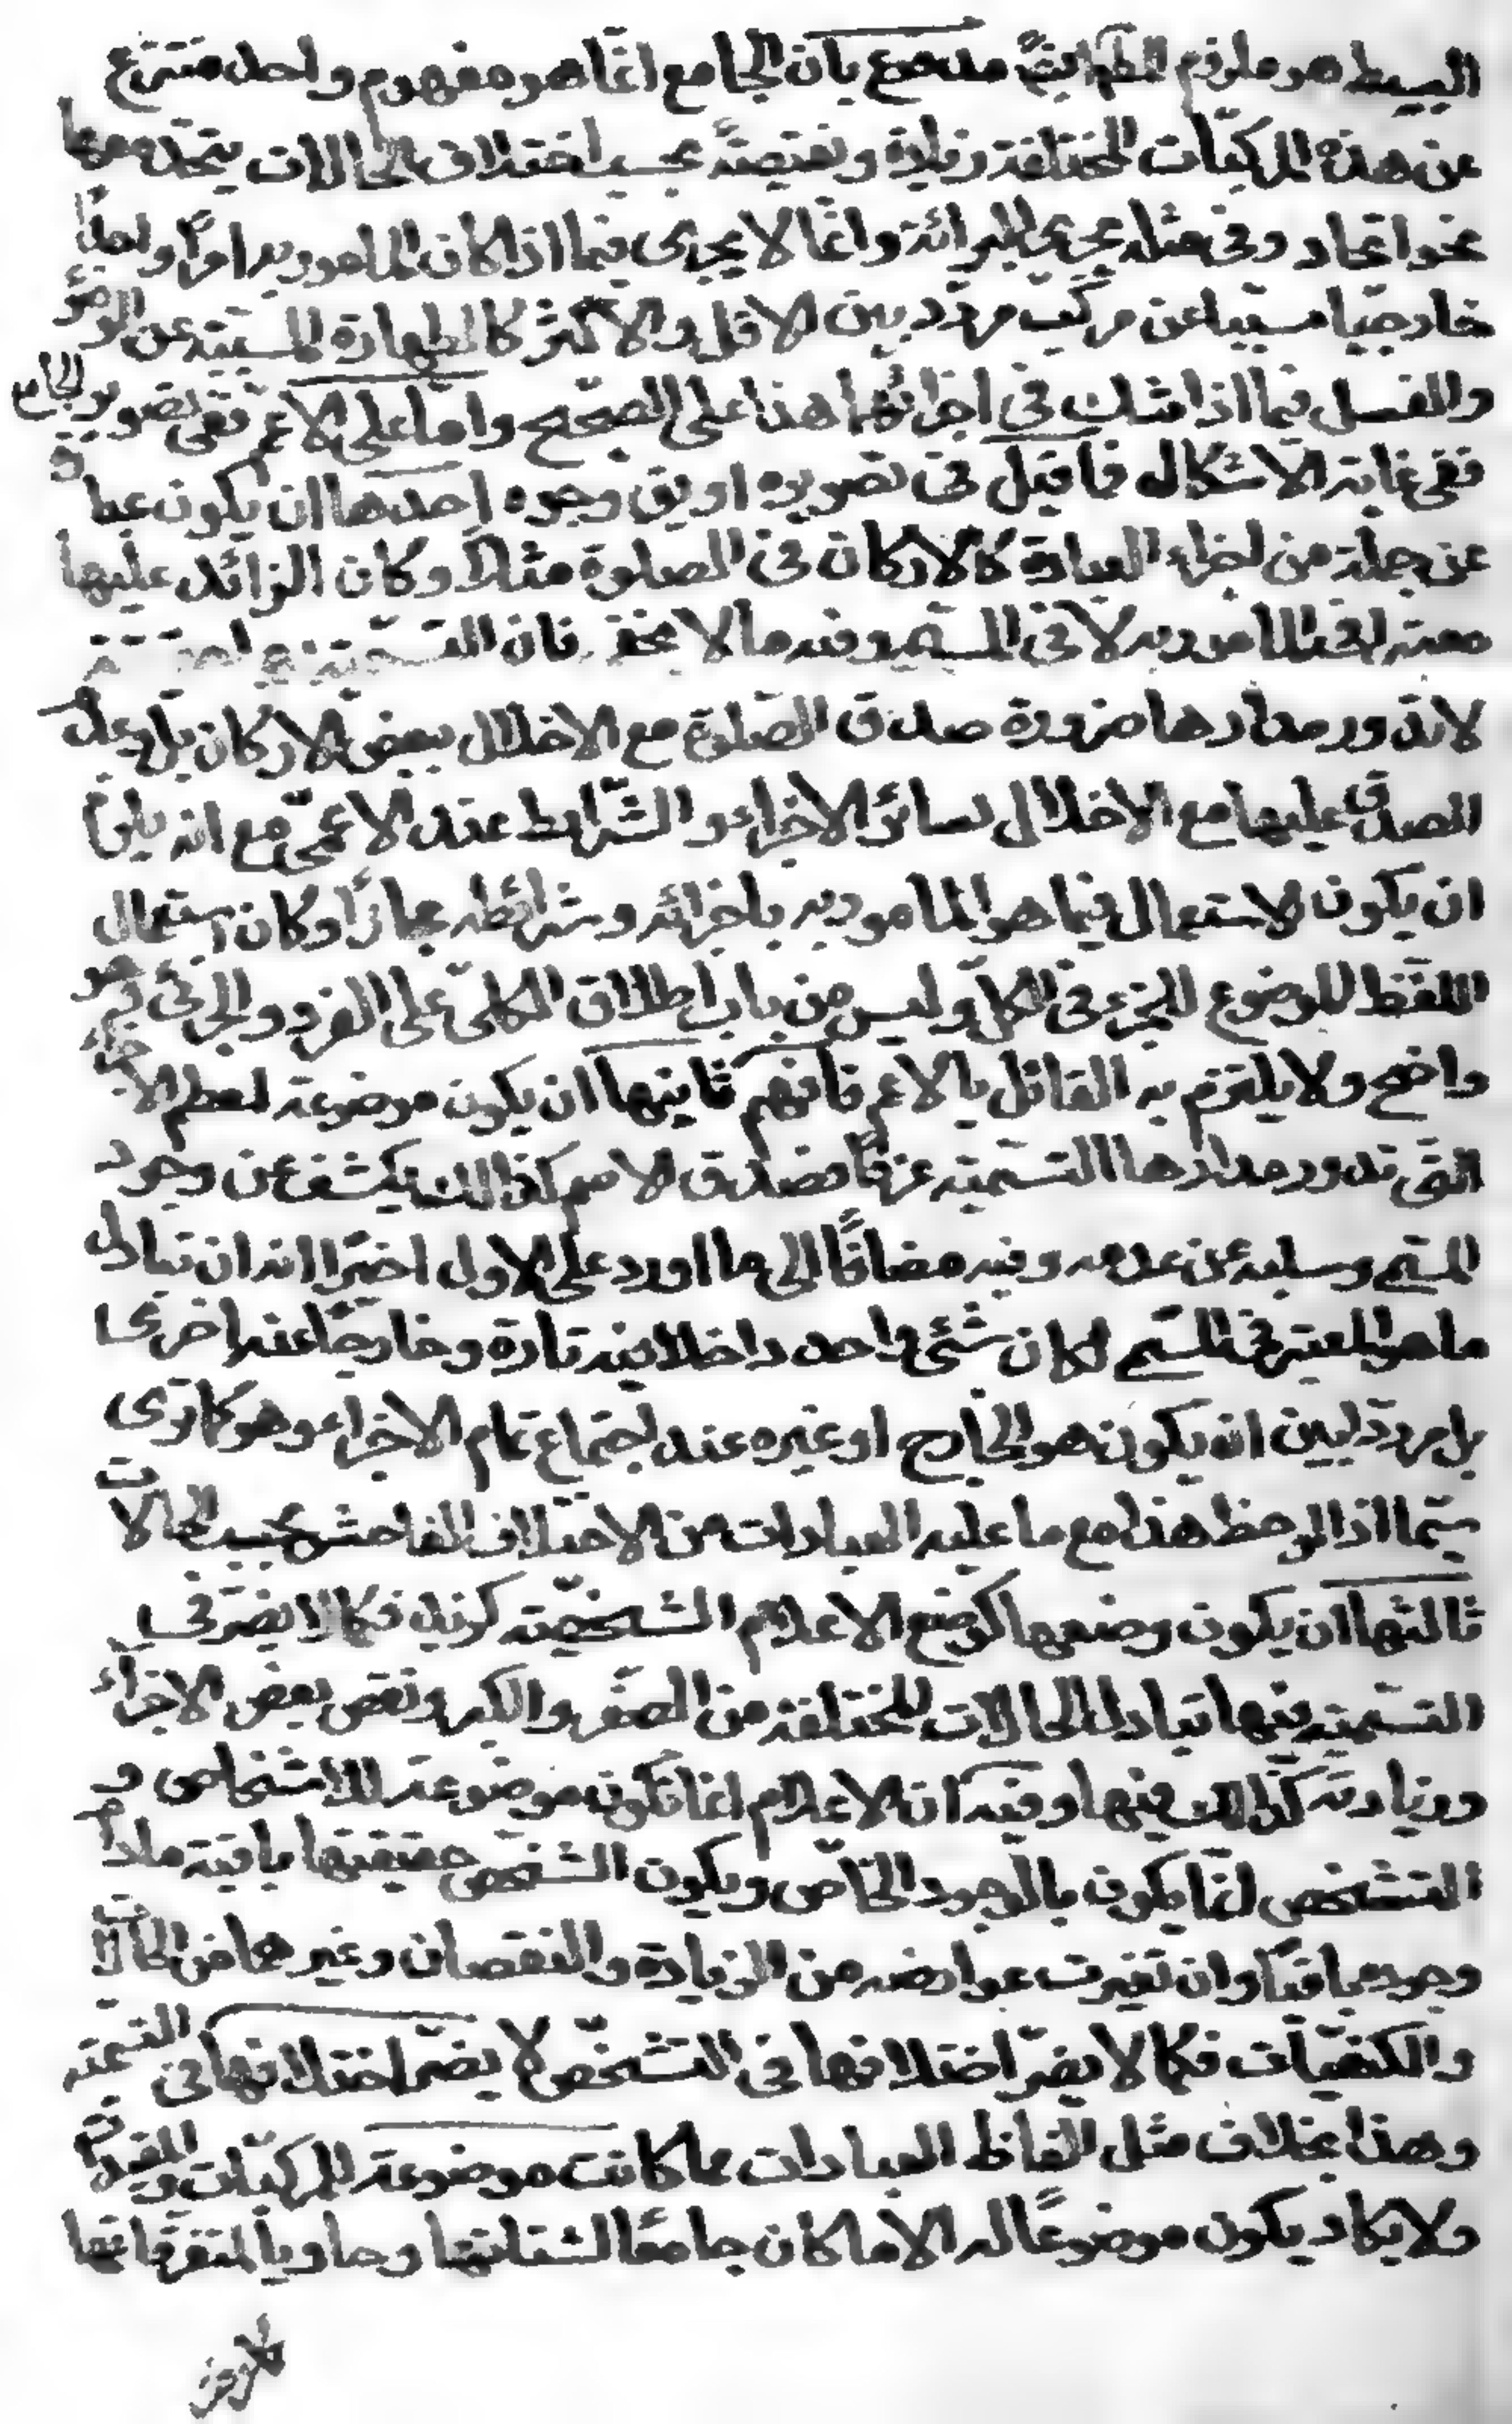 البسيط هو ملزوم المطلوب ايضًا مدفوع بان الجامع انما هو مفهوم واحد منتزع
عن هذه المركبات المختلفة زيادة ونقيصة بحسب اختلاف الحالات يتحد معها
نحو اتحاد وفى مثله يجرى البرائة وانما لا يجرى فيما اذا كان المامور به امرًا واحدًا
خارجيا مسببا عن مركب مردد بين الاقل والاكثر كالطهارة المسببة عن الوضوء
والغسل فيما اذا شك فى اجزائهما هذا على الصحيح واما على الاعم فتصوير الجامع
ففى غاية الاشكال فما قيل فى تصويره او يق وجوه احدها ان يكون عبارة
عن جملة من اجزاء العبادة كالاركان فى الصلوة مثلًا وكان الزائد عليها
معتبرا فى المامور به لا فى المسمى وفيه ما لا يخفى فان التسمية بها حقيقة
لا تدور مدارها ضرورة صدق الصلوة مع الاخلال ببعض الاركان بل وعدم
الصدق عليها مع الاخلال بسائر الاجزاء والشرايط عند الاعمى مع انه يلزم
ان يكون الاستعمال فيما هو المامور به باجزائه وشرائطه مجازًا وكان استعمال
اللفظ الموضوع للجزء فى الكل وليس من باب اطلاق الكلى على الفرد والجزئى كما هو
واضح ولا يلتزم به القائل بالاعم فافهم ثانيها ان يكون موضوعة لمعظم الاجزاء
التى تدور مدارها التسمية عرفًا فصدق الاسم كذالك يكشف عن وجود
المسمى وسلبه عن عدمه وفيه مضافًا الى ما اورد على الاول اخيرًا انه ان تبادل
ما هو المعتبر فى المسمى لكان شئ واحد داخلا فيه تارة وخارجًا عنه اخرى
بل مرددا بين ان يكون هو الخارج او غيره عند اجتماع تمام الاجزاء وهو كما ترى
سيما اذا لوحظ هذا مع ما عليه العبادات من الاختلاف الفاحش بحسب الحالات
ثالثها ان يكون وضعها كوضع الاعلام الشخصية كزيد فكما لا يضر فى
التسمية فيها تبادل الحالات المختلفة من الصغر والكبر ونقص بعض الاجزاء
وزيادته كذالك فيها وفيه ان الاعلام انما تكون موضوعة للاشخاص و
التشخص انما يكون بالوجود الخاص ويكون الشخص حقيقتها باقية مادام
وجوده باقيًا وان تغيرت عوارضه من الزيادة والنقصان وغيرهما من الحالات
والكيفيات فكما لا يضر اختلافها فى التشخص لا يضر اختلافها فى التسمية
وهذا بخلاف مثل الفاظ العبادات مما كانت موضوعة للمركبات والمقيدات
ولا يكاد يكون موضوعًا له الا ما كان جامعًا لشتاتها وحاويا لمتفرقاتها